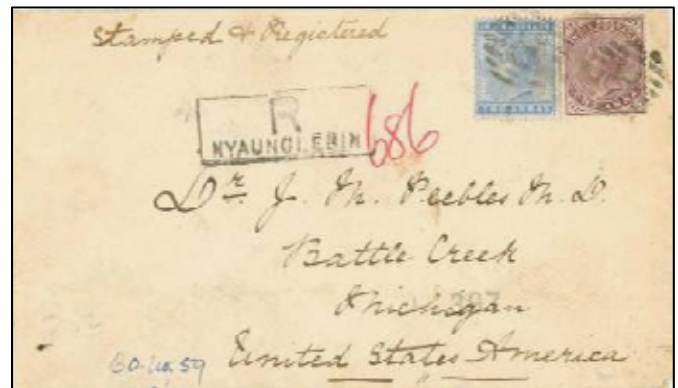 Stamped & Registered
TWO ANNAS
R
NYAUNGLEBIN
686
Dr. J. M. Peebles M. D.
Battle Creek
Michigan
397
United States America